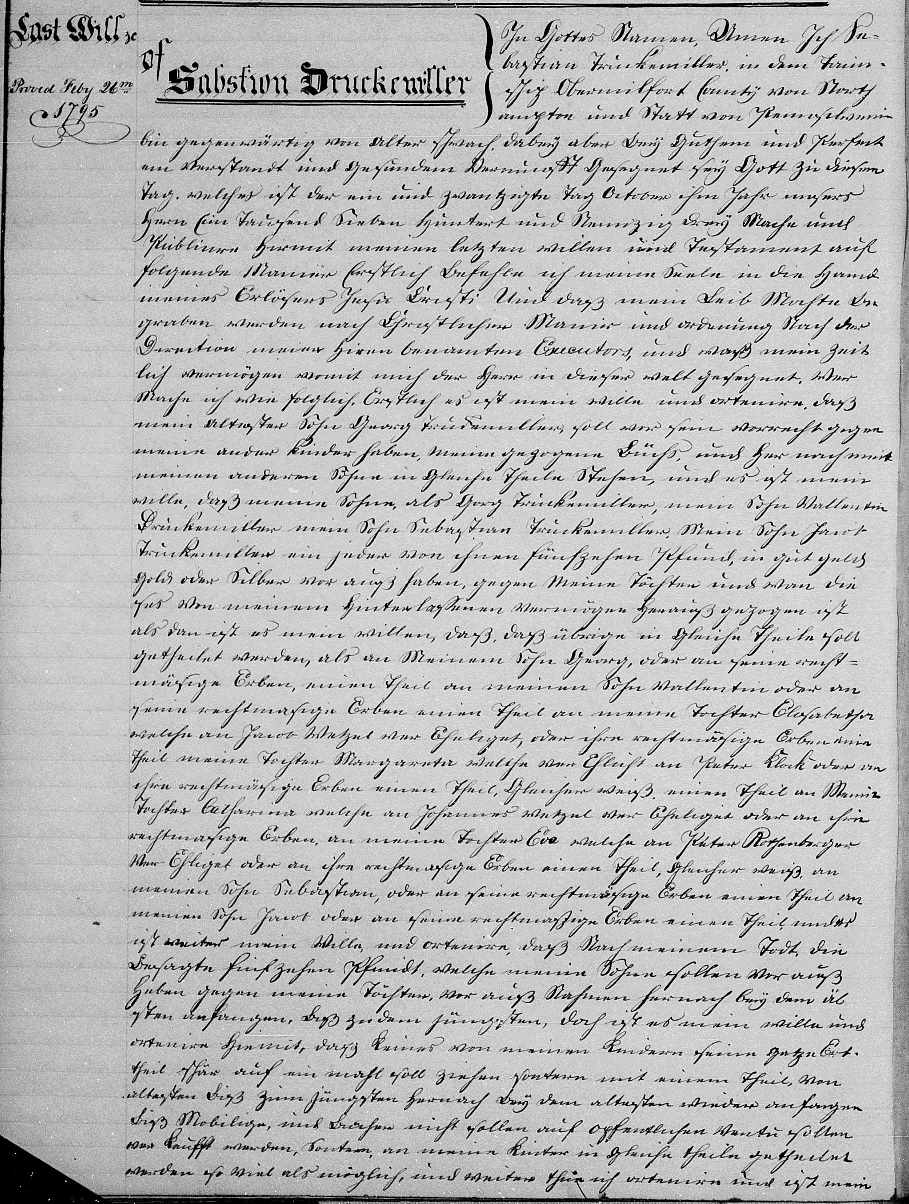 Last Will &c
of
Sabstion Druckemiller
Provd Feby 26th
1795
In Gottes Namen, Amen Ich Se-
bastian Truckemiller, in dem Taun-
schip Obermilfort Caunty von North
ampton und Statt von Pennsilvenin
bin gegenwärtig von Alter schwach, dabey aber bey Guthem und Perfect
em verstandt und Gesundem Vernunfft Gesegnet sey Gott zu diesem
Tag. welches ist der ein und zwantzigte Tag October ihm Jahr unsers
Hern Ein Tausend Sieben Hundert und Neinzig drey Mache und
Publiure Hiermit meinen letzten willen und Testament auf
folgende Manier Erstlich Befehle ich meine Seele in die Hand
meines Erlösers Jesu Cristi Und dasz mein Leib Mochte be
graben werden nach Christlicher Manir und ordenung Nach der
Direction meiner Hiren benamten Executors, und wasz mein zeit
lich vermögen womit mich der Herr in dieser welt gesegnet. Ver
Mache ich wie folglich. Erstlich es ist mein wille und ortenire, dasz
mein Altester Sohn Georg Truckemiller soll vor sein vorrecht gegen
meine ander Kinder haben, meine gezogene Büchs, und Her nach mit
meinen anderen Söhne in Gleiche Theile Stehen, und es ist mein
wille, dasz meine Söhne, als Gorg Truckemiller, mein Sohn Vallentin
Druckemiller mein Sohn Sebastian Truckemiller, Mein Sohn Jacob
Truckemiller ein jeder von ihnen fünfzehen Pfund, in gut geld
Gold oder Silber vor ausz haben, gegen Meine Töchter und wan die
ses von meinem Hinterlassenen Vermögen Herausz gezogen ist
als dan ist es mein willen, dasz, dasz übrige in Gleiche Theile soll
getheilet werden, als an Meinem Sohn Georg, oder an seine recht-
mäsige Erben, einen Theil an meinen Sohn Vallentin oder an
seine rechtmasige Erben einen Theil an meine Tochter Elisabetha
welche an Jacob Wetzel ver Eheliget, oder ihre rechtmäsige Erben ein
Theil meine Tochter Margareta welche ver Ehlicht an Peter Klock oder an
ihre rechtmäsige Erben einen Theil, Gleicher weisz. einen Theil an Meine
Tochter Catharina welche an Johannes Wetzel ver Eheliget oder an ihre
rechtmasige Erben, an meine Tochter Eva welche an Peter Rothenberger
Ver Ehliget oder an ihre rechtmasige Erben einen Theil, Gleicher weisz, an
meinen Sohn Sebastian, oder an seine rechtmäsige Erben einen Theil an
meinen Sohn Jacob oder an seine rechtmasige Erben einen Theil und es
ist weiter mein Wille, und ortenire, dasz Nach meinem Todt, die
Besagte fünfzehen Pfundt, welche meine Söhne sollen vor ausz
Haben gegen meine Töchter, vor ausz Nahmen hernach bey dem äl
sten anfangen, bisz zu dem jüngsten, doch ist es mein wille und
ortenire Hiemit, dasz Keines von meinen Kindern seine Erb-
theil auf ein mahl soll ziehen sontern mit einem Theil, von
altesten bisz zum jüngsten Hernach bey dem altesten wieder anfangen
disz Mobilige, und Bucher nicht sollen auf offentlichen Ventu sollen
ver Kaufft werden, Sontern, an meine Kinter in Gleiche Theile getheilet
werden so viel als möglich, und weiter thue ich ortenire und ist mein